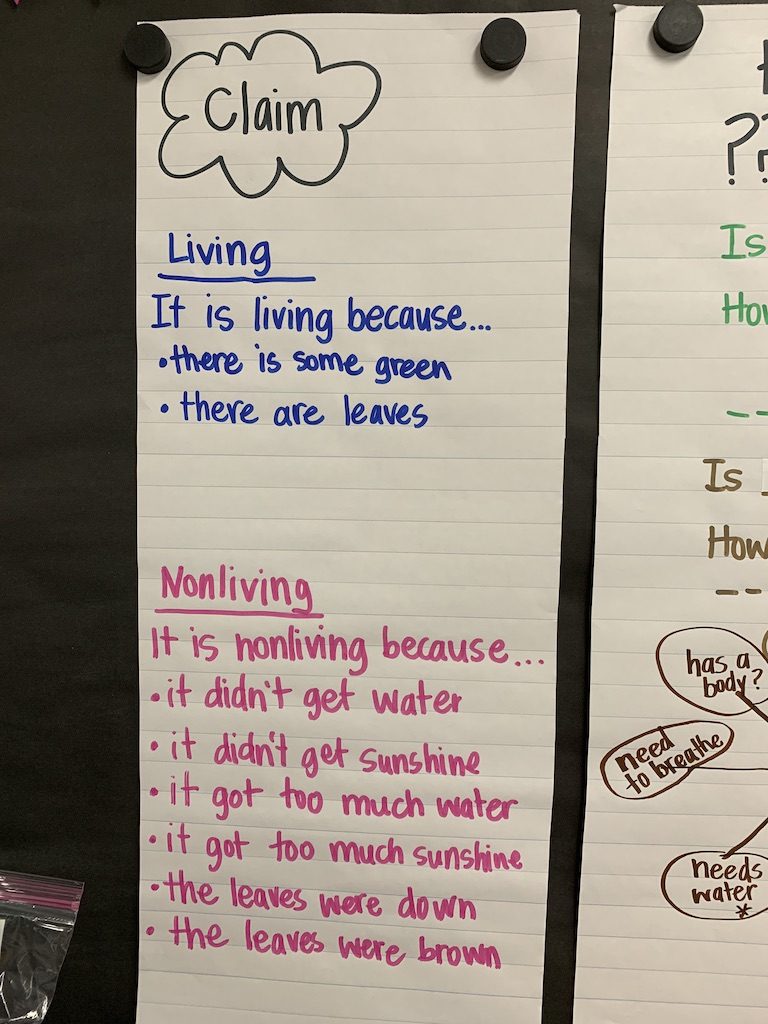 Claim
Living
It is living because...
• there is some green
• there are leaves
Nonliving
It is nonliving because...
• it didn't get water
• it didn't get sunshine
• it got too much water
• it got too much sunshine
• the leaves were down
• the leaves were brown
??
Is
How
Is
How
has a
body?
need
to breathe
needs
water
*